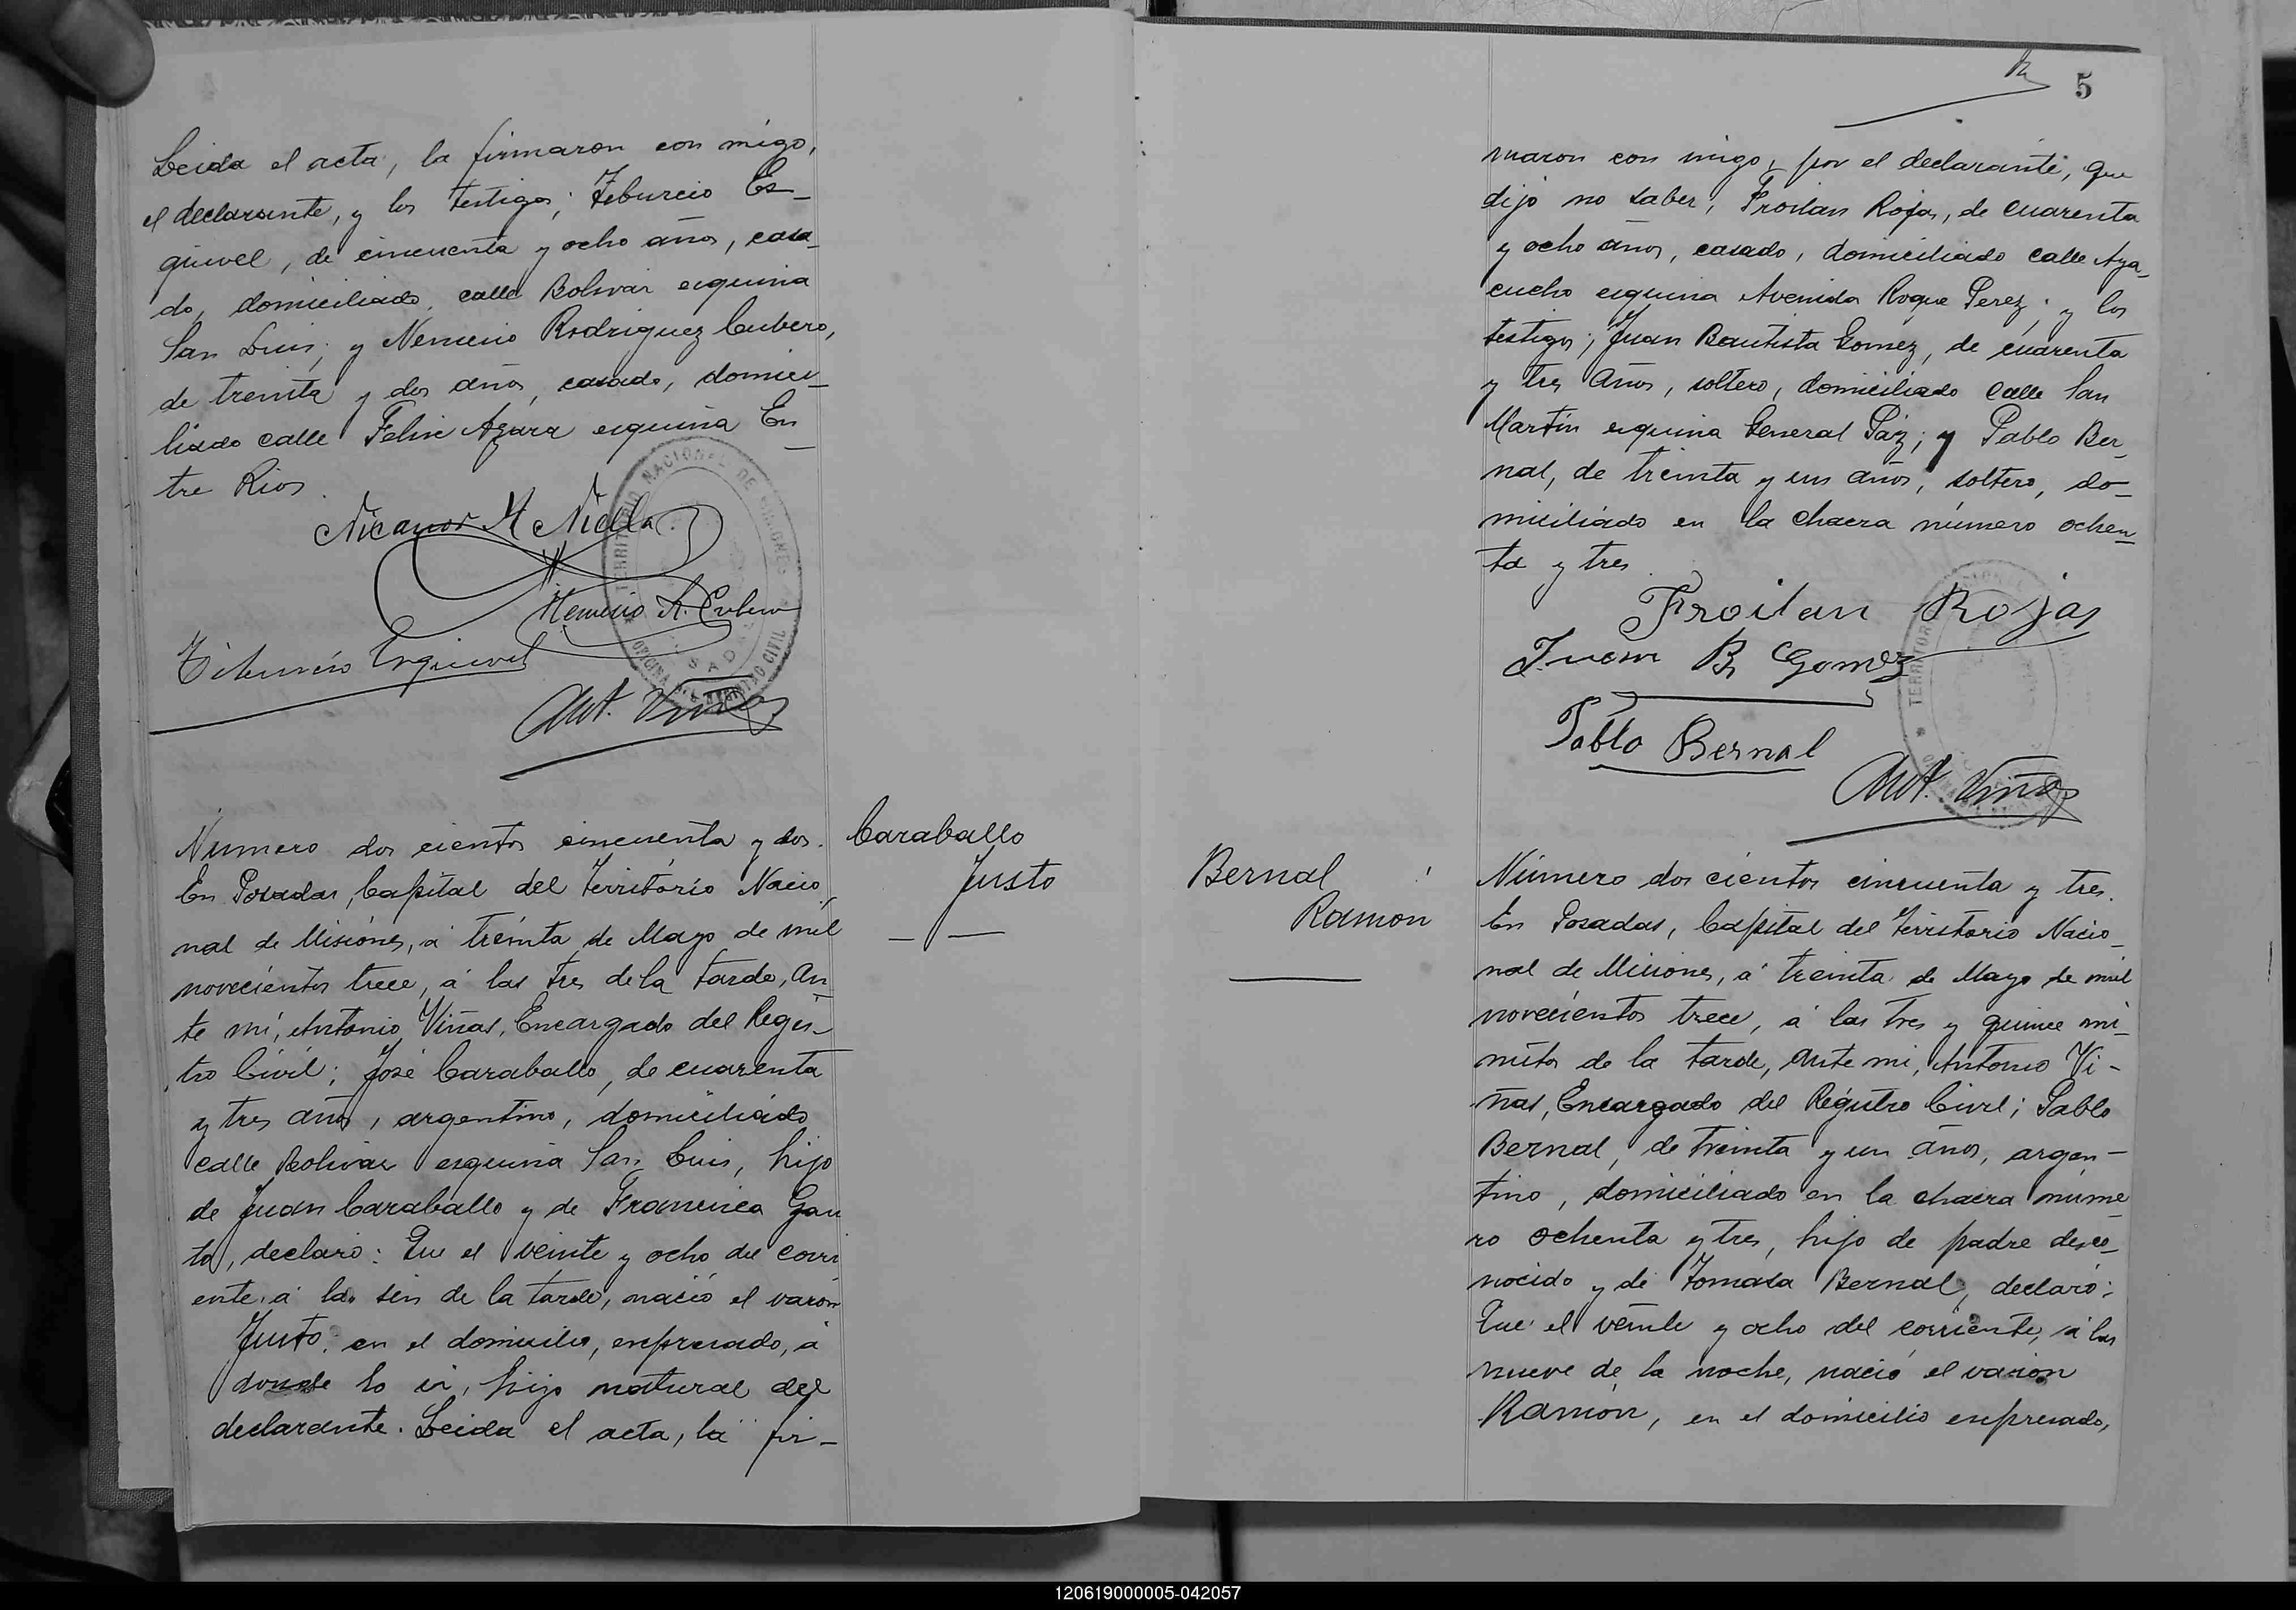 Leida el acta, la firmaron con migo,
el declarante, y los testigos; Teburcio Es-
quivel, de cincuenta y ocho años, casa-
do, domiciliado, calle Bolivar esquina
San Luis; y Nemecio Rodriguez Cubero,
de treinta y dos años, casado, domici-
liado calle Felix Azara esquina En-
tre Rios.
Nicanor M Niella
Nemecio R. Cubero
Tiburcio Esquivel
Ant. Viñas
TERRITORIO NACIONAL DE MISIONES
OFICINA DEL REGISTRO CIVIL
Número dos cientos cincuenta y dos.
En Posadas, Capital del Territorio Nacio-
nal de Misiones, a treinta de Mayo de mil
novecientos trece, á las tres de la tarde, An-
te mi, Antonio Viñas, Encargado del Regis-
tro Civil; José Caraballo, de cuarenta
y tres años, argentino, domiciliado
calle Bolivar esquina San Luis, hijo
de Juan Caraballo y de Francisca Gau
to, declaró: Que el veinte y ocho del corri
ente, á las seis de la tarde, nació el varon
Justo, en el domicilio, expresado, á
donde lo vi, hijo natural del
declarante. Leida el acta, la fir-
Caraballo
Justo
5
maron con migo, por el declarante, que
dijo no saber, Froilan Rojas, de cuarenta
y ocho años, casado, domiciliado calle Aya-
cucho esquina Avenida Roque Perez; y los
testigos; Juan Bautista Gomez, de cuarenta
y tres años, soltero, domiciliado calle San
Martin esquina General Paz; y Pablo Ber-
nal, de treinta y un años, soltero, do-
miciliado en la chacra número ochen-
ta y tres.
Froilan Rojas
Juan B Gomez
Pablo Bernal
Ant. Viñas
Bernal
Ramon
Número dos cientos cincuenta y tres.
En Posadas, Capital del Territorio Nacio-
nal de Misiones, a treinta de Mayo de mil
novecientos trece, á las tres y quince mi-
nutos de la tarde, ante mi, Antonio Vi-
ñas, Encargado del Registro Civil; Pablo
Bernal, de treinta y un años, argen-
tino, domiciliado en la chacra núme
ro ochenta y tres, hijo de padre desco-
nocido y de Tomasa Bernal, declaró:
Que el veinte y ocho del corriente, á las
nueve de la noche, nació el varon
Ramón, en el domicilio expresado,
120619000005-042057